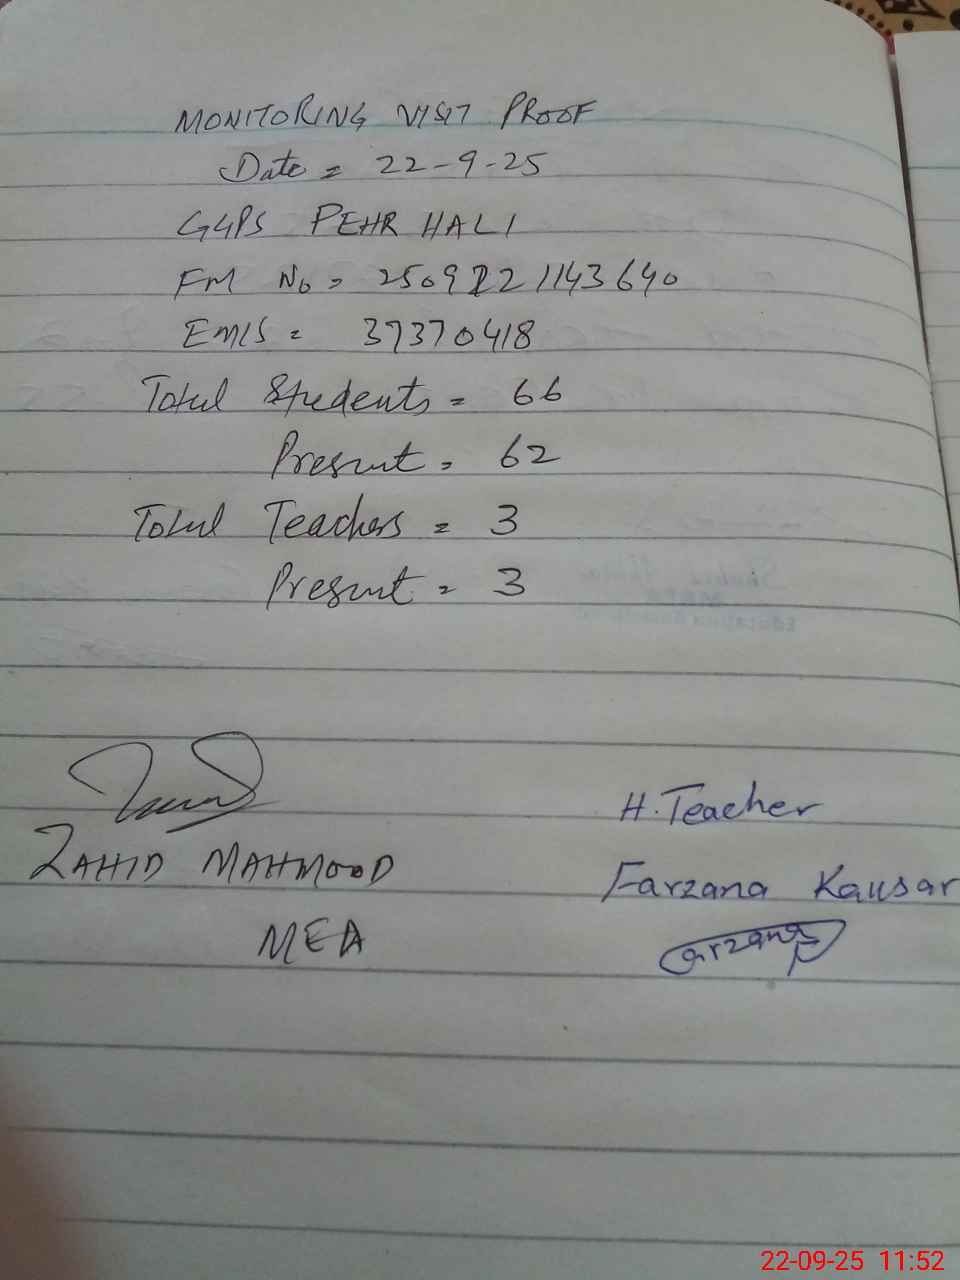 MONITORING VISIT PROOF
Date = 22-9-25
GGPS PEHR HALI
FM No = 2509221143640
EMIS = 37370418
Total Students = 66
Present = 62
Total Teachers = 3
Present = 3
ZAHID MAHMOOD
MEA
H. Teacher
Farzana Kausar
Farzana
22-09-25 11:52